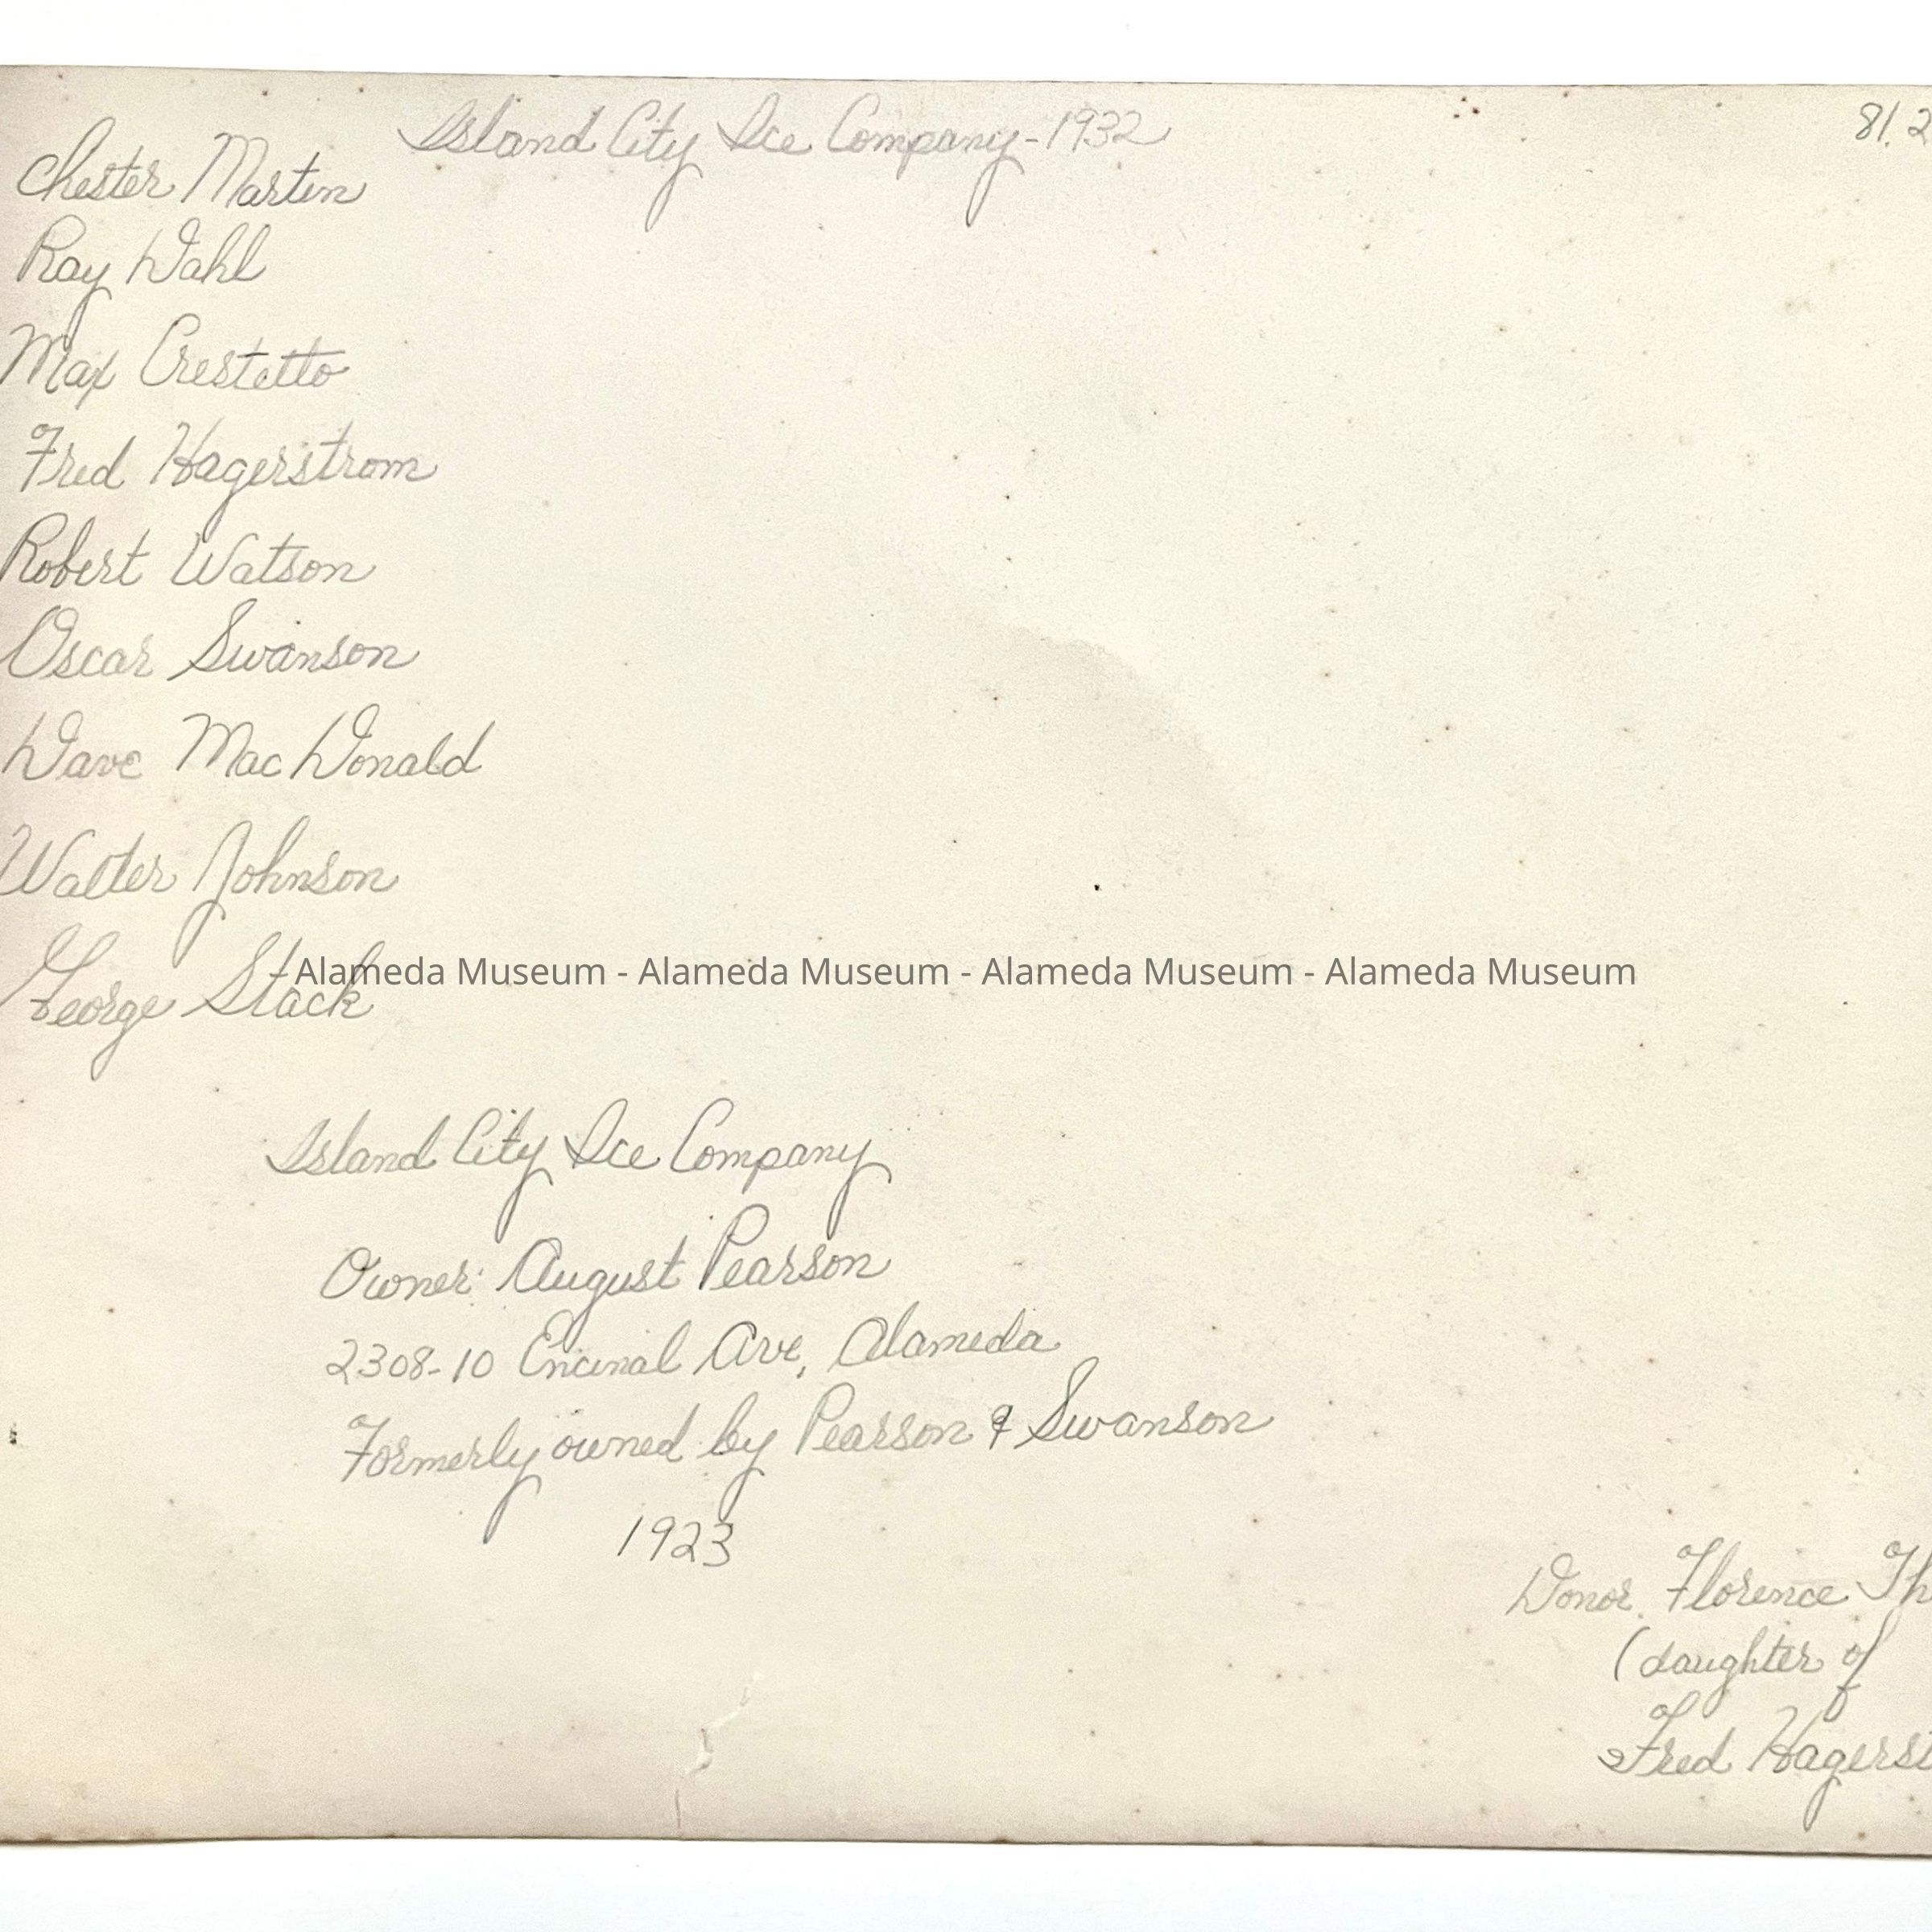 Island City Ice Company-1932
81.2
Chester Martin
Ray Wahl
Max Crestetto
Fred Hagerstrom
Robert Watson
Oscar Swanson
Dave MacDonald
Walter Johnson
George Stack
Alameda Museum - Alameda Museum - Alameda Museum - Alameda Museum
Island City Ice Company
Owner: August Pearson
2308-10 Encinal Ave, Alameda
Formerly owned by Pearson & Swanson
1923
Donor. Florence Th
(daughter of
Fred Hagerst